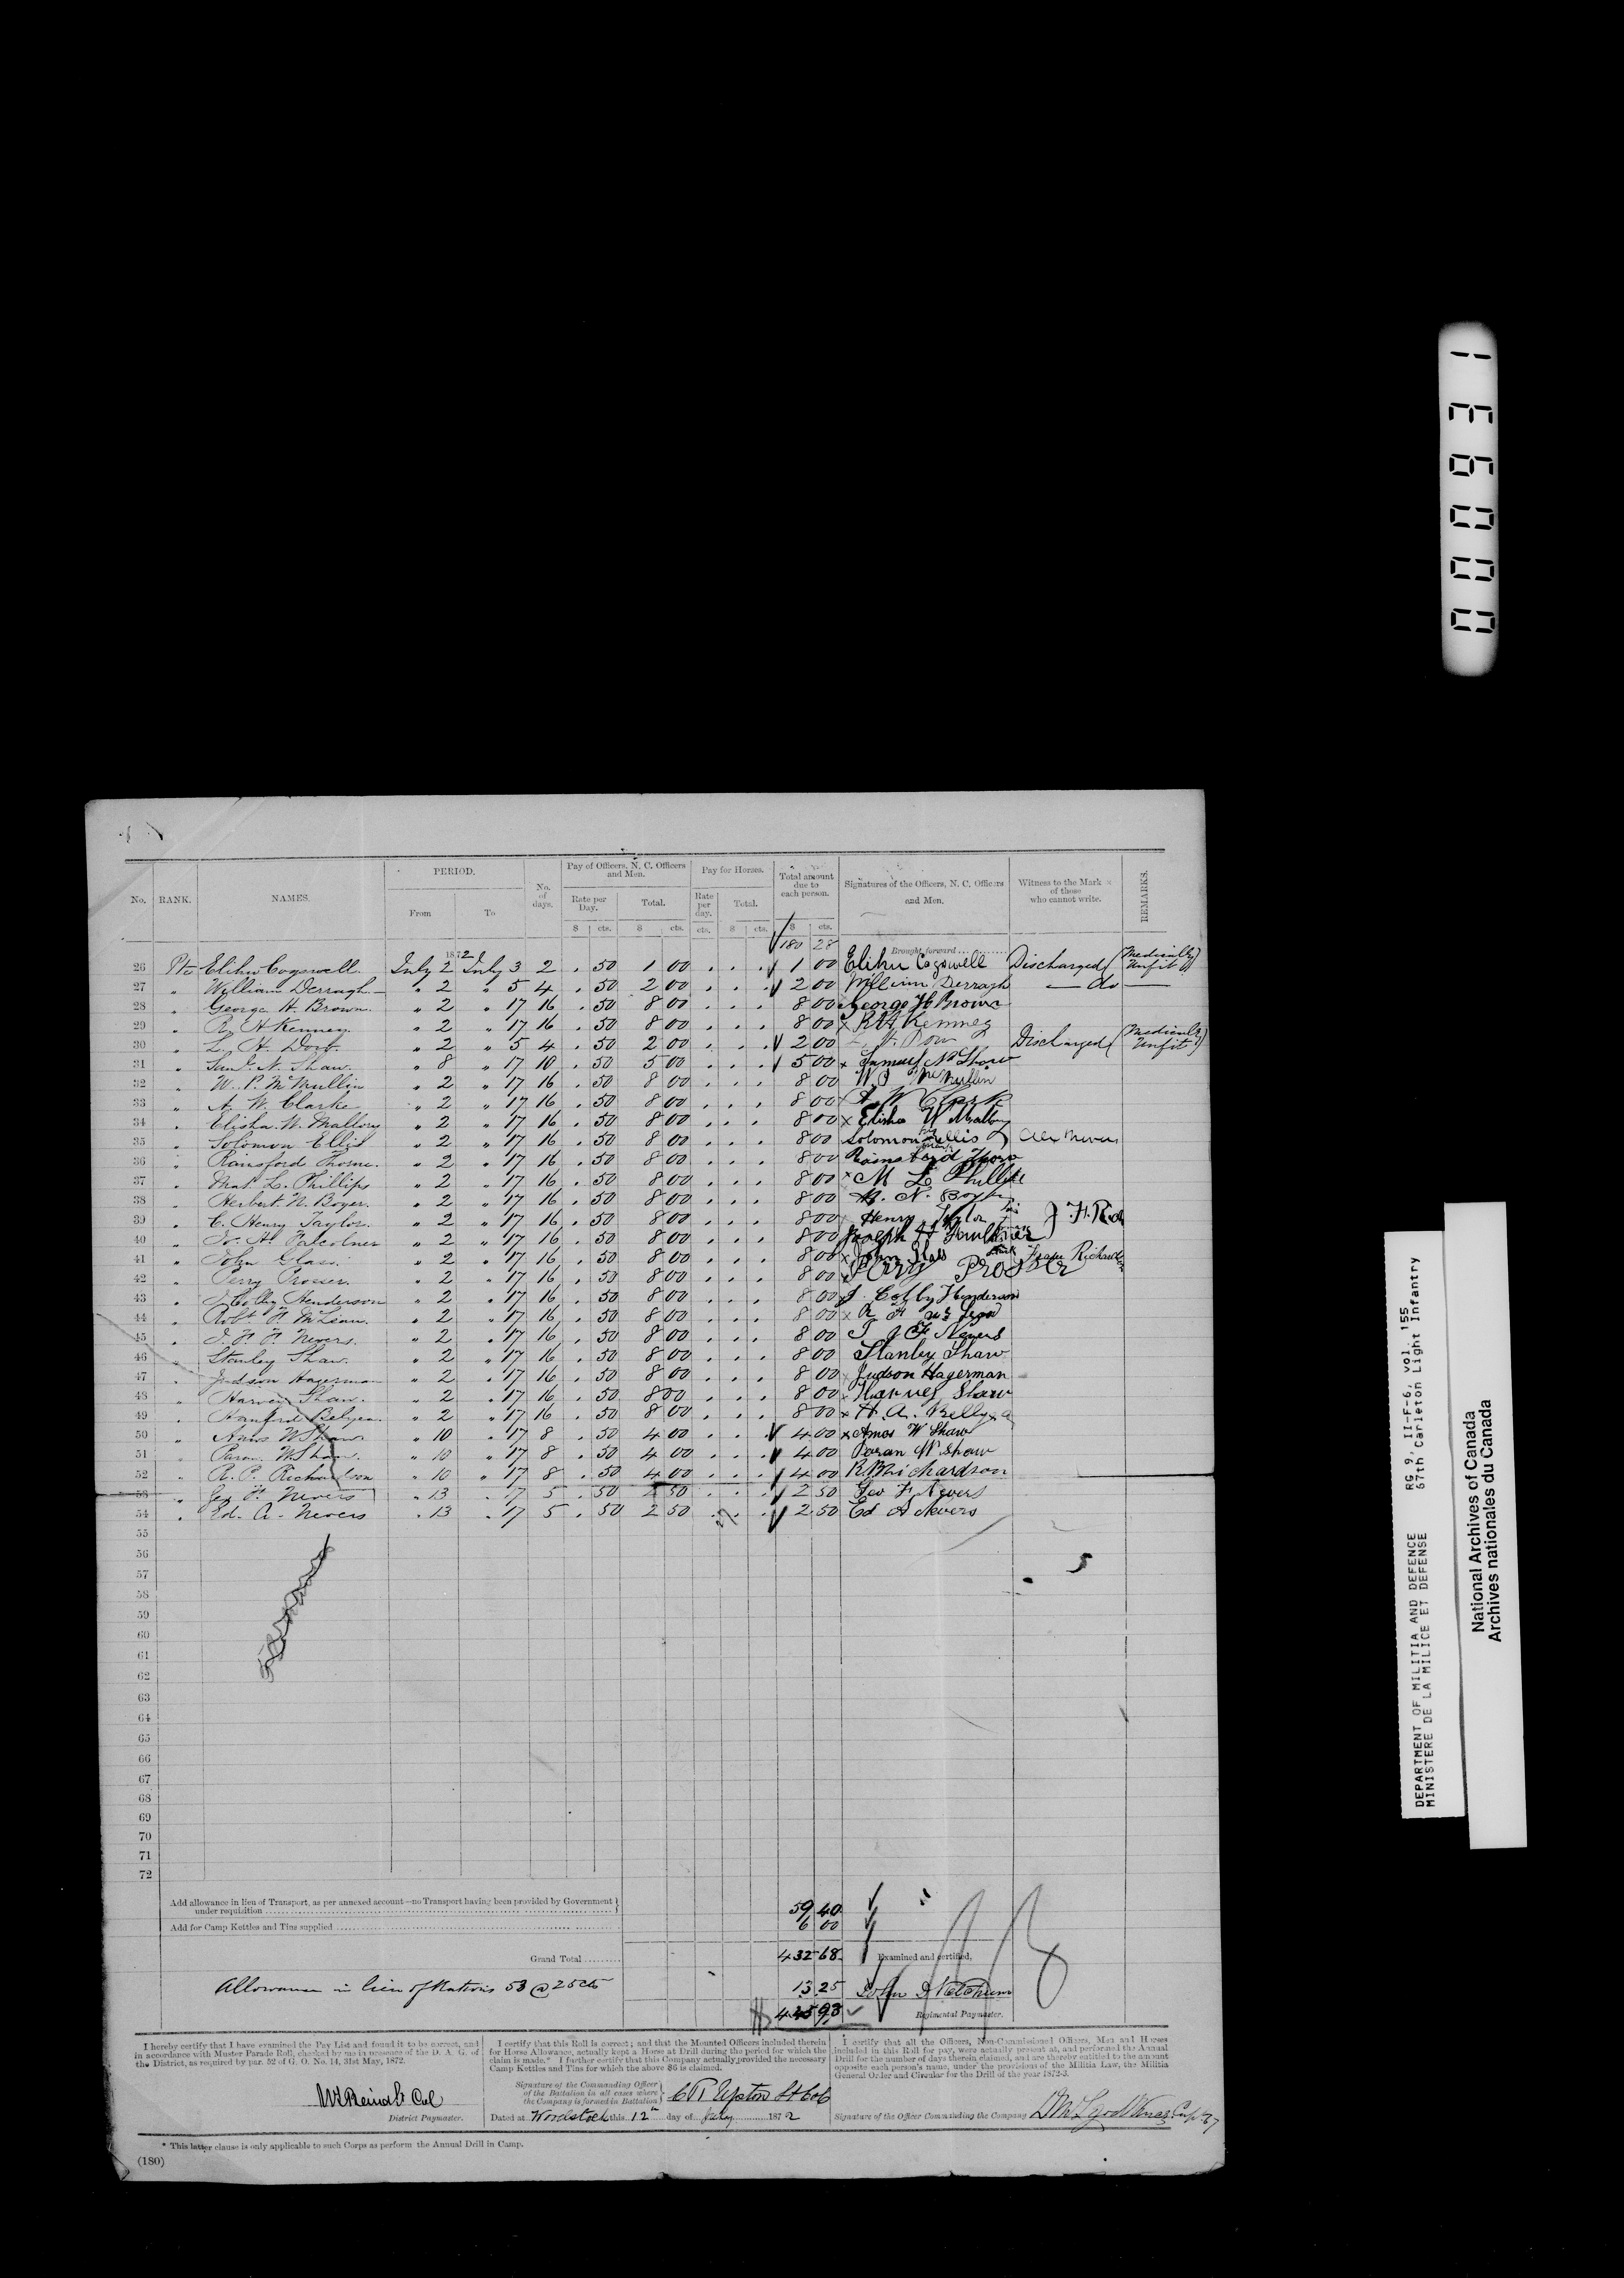 No. RANK. NAMES. PERIOD. From To No. of days. Pay of Officers, N. C. Officers and Men. Rate per Day. Total. Pay for Horses. Rate per day. Total. Total amount due to each person. Signatures of the Officers, N. C. Officers and Men. Witness to the Mark × of those who cannot write. REMARKS.
$ cts. $ cts. cts. $ cts. $ cts.
1872 180 28 Brought forward
26 Pte Elihu Cogswell. July 2 July 3 2 . 50 1 00 . . . 1 00 Elihu Cogswell Discharged (Medically Unfit)
27 " William Derragh " 2 " 5 4 . 50 2 00 . . . 2 00 William Derragh — do —
28 " George H. Brown. " 2 " 17 16 . 50 8 00 . . . 8 00 George H Brown
29 " R. H. Kenney. " 2 " 17 16 . 50 8 00 . . . 8 00 × R H Kenney
30 " L. H. Dow. " 2 " 5 4 . 50 2 00 . . . 2 00 L. H. Dow Discharged (Medically Unfit)
31 " Saml. N. Shaw. " 8 " 17 10 . 50 5 00 . . . 5 00 × Samuel N Shaw
32 " W. P. McMullin " 2 " 17 16 . 50 8 00 . . . 8 00 W. P McMullin
33 " A. W. Clarke " 2 " 17 16 . 50 8 00 . . . 8 00 A W Clark
34 " Elisha. W. Mallory " 2 " 17 16 . 50 8 00 . . . 8 00 × Elisha W Mallory
35 " Solomon Ellis " 2 " 17 16 . 50 8 00 . . . 8 00 Solomon his mark Ellis Alex Nevers
36 " Rainsford Thorne. " 2 " 17 16 . 50 8 00 . . . 8 00 Rainsford Thorn
37 " Mat. L. Phillips " 2 " 17 16 . 50 8 00 . . . 8 00 × M L Phillips
38 " Herbert. N. Boyer. " 2 " 17 16 . 50 8 00 . . . 8 00 H. N. Boyer
39 " C. Henry Taylor. " 2 " 17 16 . 50 8 00 . . . 8 00 Henry Taylor J. H. Rich
40 " J. H. Falcolner " 2 " 17 16 . 50 8 00 . . . 8 00 Joseph H Faulkner
41 " John Glass. " 2 " 17 16 . 50 8 00 . . . 8 00 × John Glass mark
42 " Perry Prosser. " 2 " 17 16 . 50 8 00 . . . 8 00 Perry Prosser
43 " J Colby Henderson " 2 " 17 16 . 50 8 00 . . . 8 00 J. Colby Henderson
44 " Robt. F. McLean. " 2 " 17 16 . 50 8 00 . . . 8 00 × R F
45 " " 2 " 17 16 . 50 8 00 . . . 8 00 Nevers
46 " Stanley Shaw. " 2 " 17 16 . 50 8 00 . . . 8 00 Stanley Shaw
47 " Judson Hagerman " 2 " 17 16 . 50 8 00 . . . 8 00 Judson Hagerman
48 " Harvey Shaw. " 2 " 17 16 . 50 8 00 . . . 8 00 Harvey Shaw
49 " Hanford Belyea. " 2 " 17 16 . 50 8 00 . . . 8 00 × H. A. Bellyea
50 " Amos W Shaw. " 10 " 17 8 . 50 4 00 . . . 4 00 × Amos W Shaw
51 " Paran. W Shaw. " 10 " 17 8 . 50 4 00 . . . 4 00 Paran W Shaw
52 " R. P. Richardson " 10 " 17 8 . 50 4 00 . . . 4 00 R P Richardson
53 " Geo F. Nevers " 13 " 17 5 . 50 2 50 . . . 2 50 Geo F. Nevers
54 " Ed. A. Nevers " 13 " 17 5 . 50 2 50 . . . 2 50 Ed A Nevers
55
56 5
57
58
59
60
61
62
63
64
65
66
67
68
69
70
71
72
Add allowance in lieu of Transport, as per annexed account—no Transport having been provided by Government under requisition 59 40
Add for Camp Kettles and Tins supplied 6 00
Grand Total 432 68 Examined and certified,
Allowance in lieu of Rations 53 @ 25 cts 13 25 John
445 93 Regimental Paymaster.
I hereby certify that I have examined the Pay List and found it to be correct, and in accordance with Muster Parade Roll, checked by me in presence of the D. A. G. of the District, as required by par. 52 of G. O. No. 14, 31st May, 1872.
District Paymaster.
I certify that this Roll is correct; and that the Mounted Officers included therein for Horse Allowance, actually kept a Horse at Drill during the period for which the claim is made.* I further certify that this Company actually provided the necessary Camp Kettles and Tins for which the above $6 is claimed.
Signature of the Commanding Officer of the Battalion in all cases where the Company is formed in Battalion C R Upton Lt Col
Dated at Woodstock this 12th day of July 1872
I certify that all the Officers, Non-Commissioned Officers, Men and Horses included in this Roll for pay, were actually present at, and performed the Annual Drill for the number of days therein claimed, and are thereby entitled to the amount opposite each person's name, under the provisions of the Militia Law, the Militia General Order and Circular for the Drill of the year 1872-3.
Signature of the Officer Commanding the Company
* This latter clause is only applicable to such Corps as perform the Annual Drill in Camp.
(180)
000931
DEPARTMENT OF MILITIA AND DEFENCE RG 9, II-F-6, vol. 155
MINISTERE DE LA MILICE ET DEFENSE 67th Carleton Light Infantry
National Archives of Canada
Archives nationales du Canada